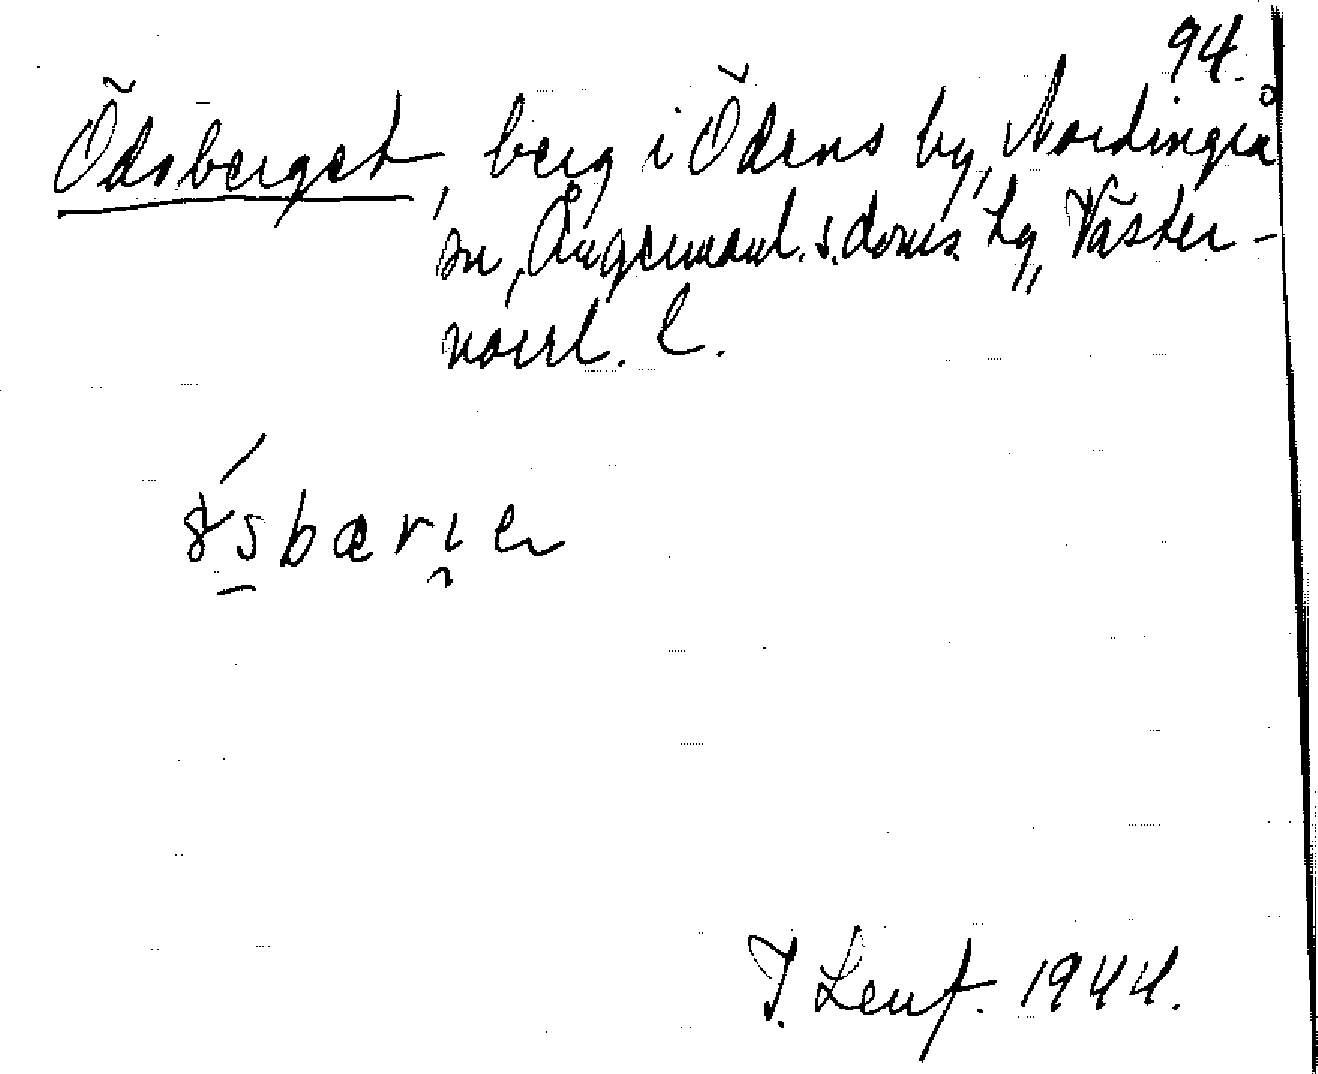 94.
Ödsberget, berg i Ödens by, Nordingrå
sn, Ångermanl. s. doms. lg, Väster-
norrl. l.
sbærıe
T. Lenf. 1944.